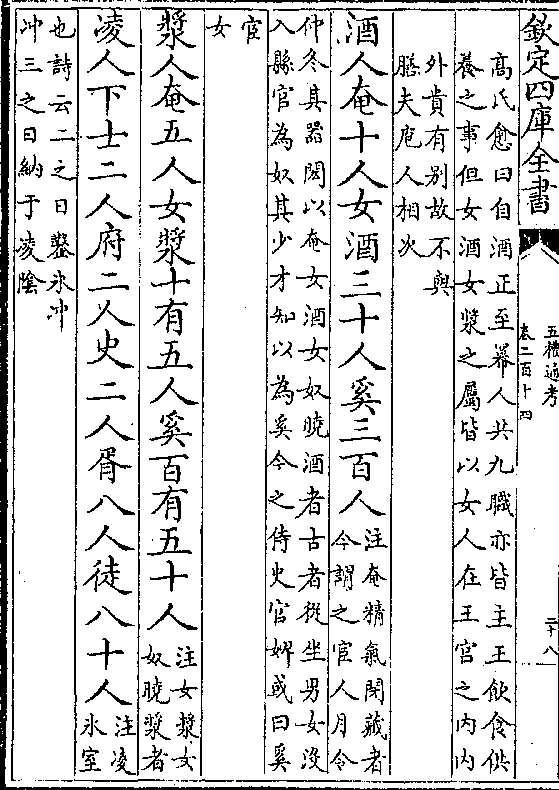 欽定四庫全書
五禮通考
卷二百十四
二十八
高氏愈曰自酒正至冪人共九職亦皆主王飲食供
養之事但女酒女漿之屬皆以女人在王官之内内
外貴有别故不與
膳夫庖人相次
酒人奄十人女酒三十人奚三百人
注奄精氣閉藏者
今謂之宦人月令
仲冬其器閎以奄女酒女奴曉酒者古者從坐男女没
入縣官為奴其少才知以為奚今之侍史官婢或曰奚
宦
女
漿人奄五人女漿十有五人奚百有五十人
注女漿女
奴曉漿者
凌人下士二人府二人史二人胥八人徒八十人
注凌
氷室
也詩云二之日鑿氷冲
冲三之日納于凌隂